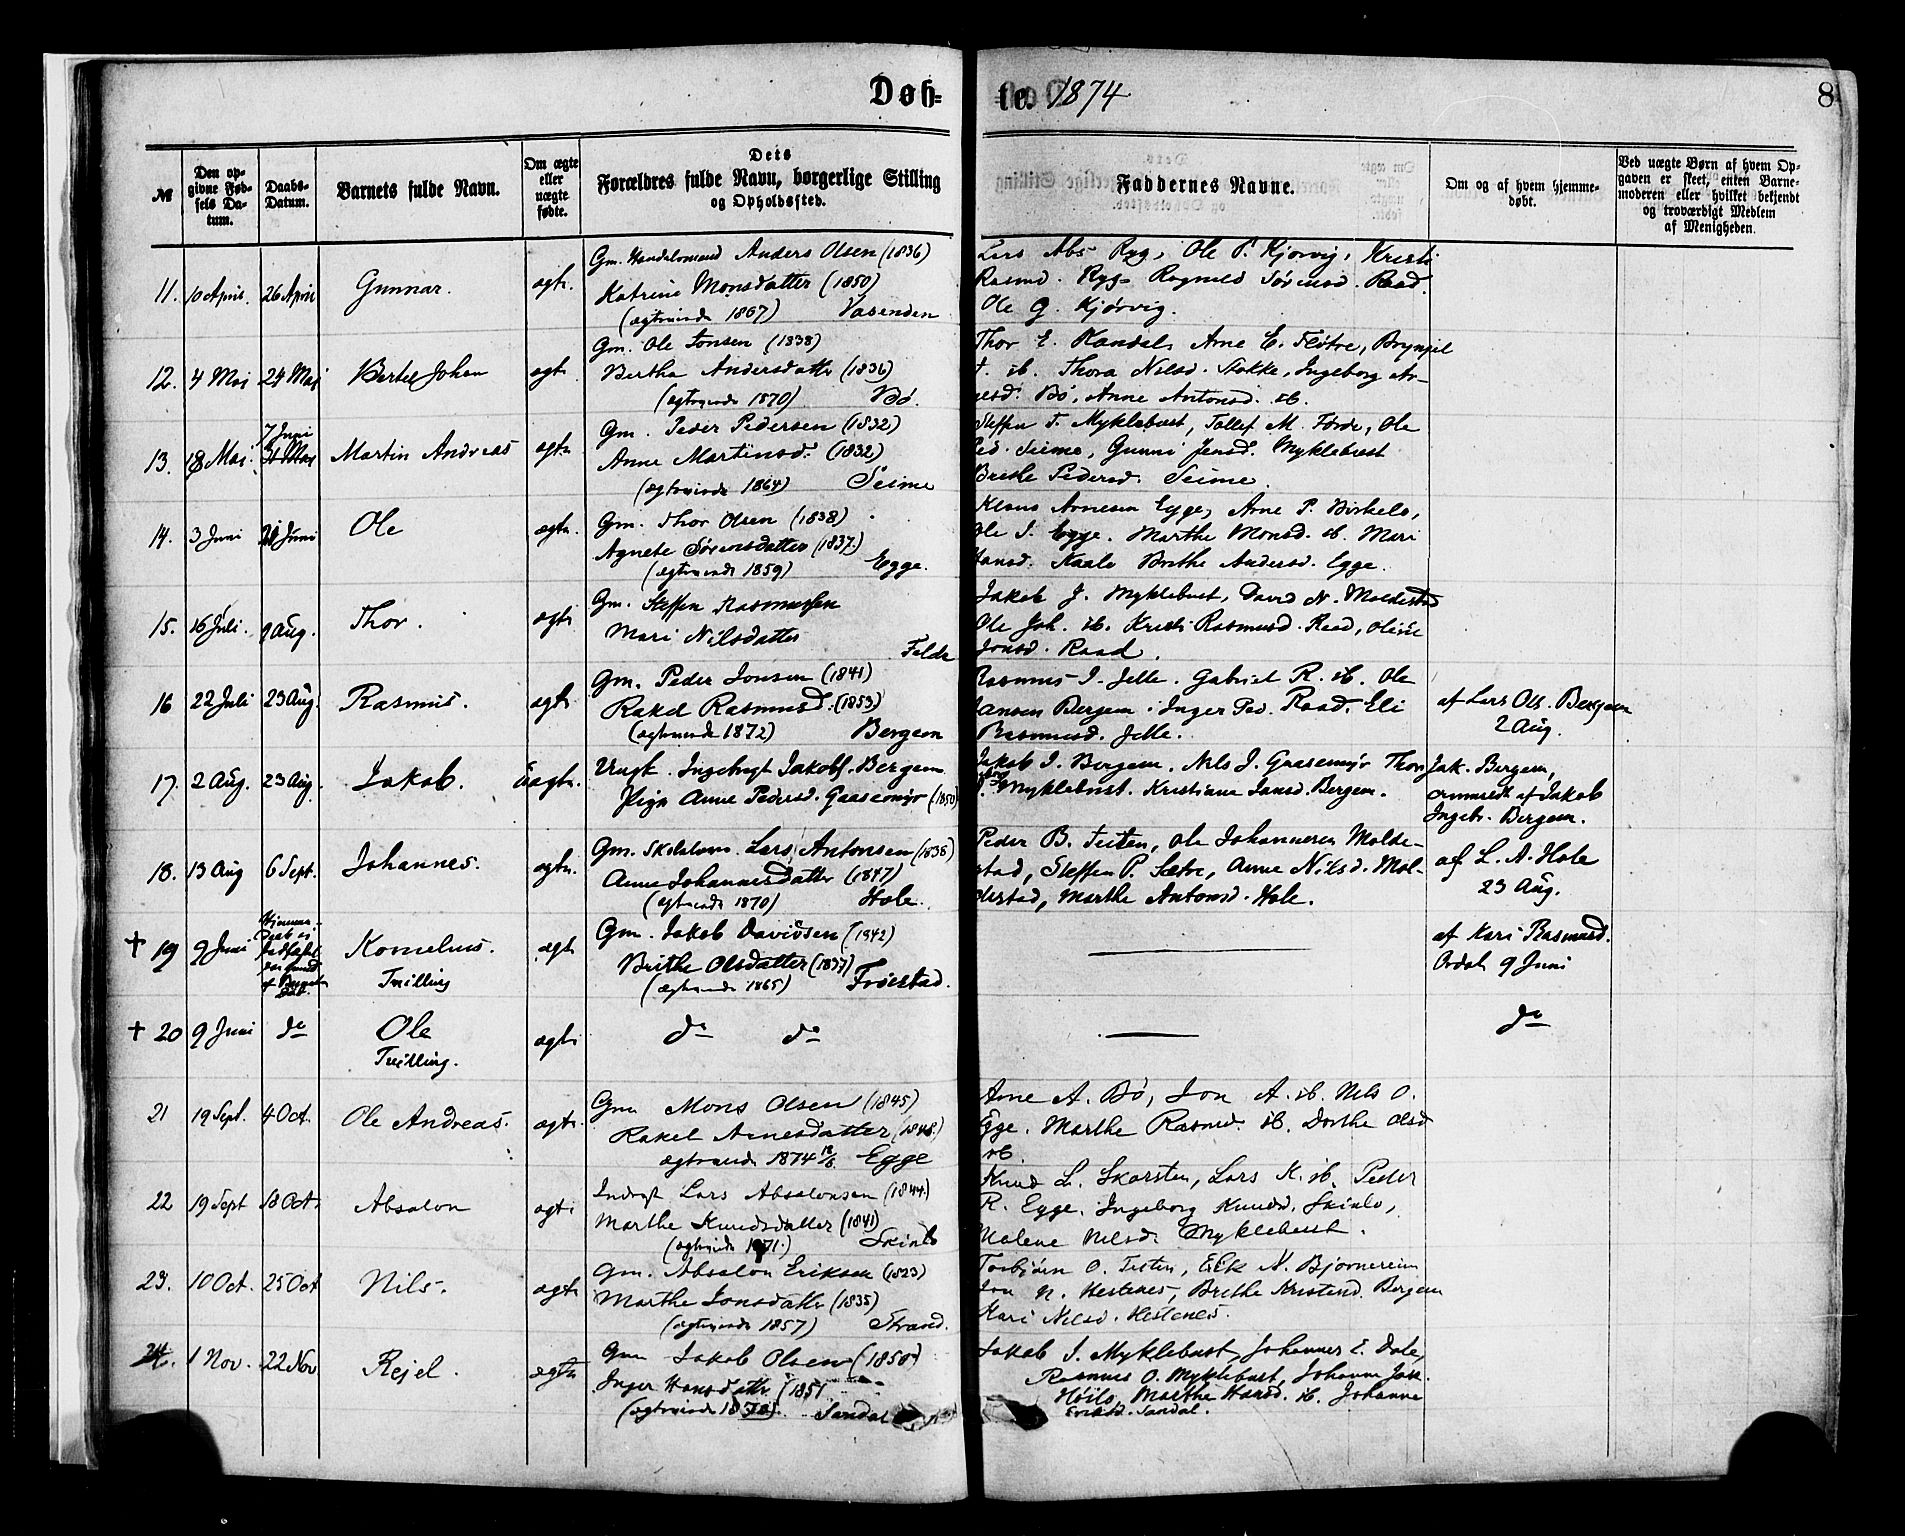 Døb-
te. 1874
8
№
Den op-
givne Fød-
sels Da-
tum.
Daabs-
Datum.
Barnets fulde Navn.
Om ægte
eller
uægte
fødte.
Dets
Forældres fulde Navn, borgerlige Stilling
og Opholdssted.
Faddernes Navne.
Om og af hvem hjemme-
døbt.
Ved uægte Børn af hvem Op-
gaven er skeet, enten Barne-
moderen eller hvilket bekjendt
og troværdigt Medlem
af Menigheden.
11. 10 April. 26 April Gunnar. ægte.
Gm. Anders Olsen (1836)
Katrine Monsdatter (1850)
(ægteviede 1867) Vasenden
Lars Abs Ryg, Ole P. Kjørvig, Kristi
Rasmd. Ryg Ragnild Sørensd. Raad.
Ole G. Kjørvig.
12. 4 Mai 24 Mai Bertel Johan ægte
Gm. Ole Jonsen (1838)
Bertha Andersdatter (1836)
(ægteviede 1870) Bø.
Thor E. Kandal, Arne E. Fløtre, Brynjel
ib. Thora Nilsd. Stakke, Ingeborg Ar-
nesd. Bø, Anne Antonsd. ib.
13. 18 Mai. 7 Juni Martin Andreas ægte
Gm. Peder Pedersen (1832)
Anne Martinsd. (1832)
(ægteviede 1864) Seime
Steffen T. Myklebust, Tollef M. Førde, Ole
Ped. Seime, Gunni Jensd. Myklebust
Brethe Pedersd. Seime.
14. 3 Juni 21 Juni Ole ægte.
Gm. Thor Olsen (1838)
Agnete Sørensdatter (1837.)
(ægteviede 1859) Egge.
Klaus Arnesen Egge, Arne P. Birkelo,
Ole I. Egge. Marthe Monsd. ib. Mari
Hansd. Brithe Andersd. Egge.
15. 16 Juli. 9 Aug. Thor. ægte
Gm. Steffen Rasmussen
Mari Nilsdatter
Felde
Jakob J. Myklebust, David N. Moldestad
Ole Joh. ib. Kristi Rasmusd. Raad, Oline
Jonsd. Raad.
16 22 Juli 23 Aug. Rasmus. ægte
Gm. Peder Jonsen (1841)
Rakel Rasmusd. (1853)
(ægteviede 1872) Bergem
Rasmus I. Jelle. Gabriel R. ib. Ole
Hansen Bergem. Inger Ped. Raad. Eli
Rasmusd. Jelle.
af Lars Ols. Bergem
2 Aug.
17. 2 Aug. 23 Aug. Jakob. Uægte.
Ungk. Ingebrigt Jakobs. Bergem
Pige Anne Pedersd. Gaasemyr (1850)
Jakob I. Bergem, Nils J. Gaasemyr Thor
Myklebust. Kristiane Jansd. Bergem.
Jak. Bergem,
anmeldt af Jakob
Ingebr. Bergem.
18. 13 Aug 6 Sept. Johannes. ægte.
Gm. Skolelærer. Lars Antonsen (1838)
Anne Johannesdatter (1847)
(ægteviede 1870) Hole.
Peder B. Teiten, Ole Johannesen Molde-
stad, Steffen P. Sætre, Anne Nilsd. Mol-
destad, Marthe Antonsd. Hole.
af L. A. Hole
23 Aug.
† 19 9 Juni Kornelius. ægte
Tvilling
Gm. Jakob Davidsen (1842)
Brithe Olsdatter (1837)
(ægteviede 1865) Frøistad.
af Kari Rasmusd.
Ordal 9 Juni
† 20 9 Juni do Ole ægte
Tvilling.
do do
do
21 19 Sept. 4 Oct. Ole Andreas. ægte
Gm Mons Olsen (1845)
Rakel Arnesdatter (1848.)
ægteviede 1874 Egge
Arne A. Bø, Jon A. ib. Nils O.
Egge. Marthe Rasmd. ib. Dorthe Olsd
ib.
22 19 Sept 18 Oct. Absalon ægte
Inderst Lars Absalonsen (1844.)
Marthe Knudsdatter (1841)
(ægteviede 1871.) Skinlo
Knud L. Skarsten, Lars K. ib. Peder
R. Egge. Ingeborg Knudsd. Skinlo,
Malene Nilsd. Myklebust.
23. 10 Oct. 25 Oct Nils. ægte
Gm. Absalon Eriksen (1823)
Marthe Jonsdatter (1835)
(ægteviede 1857) Strand.
Torbjørn O. Teiten, Erik N. Bjørnereim
Jon N. Hestenes, Brethe Kristensd. Bergem
Kari Nilsd. Hestenes.
24. 1 Nov. 22 Nov Rejel. ægte
Gm Jakob Olsen (1850)
Inger Hansdatter (1851
(ægteviede Sandal
Jakob I. Myklebust, Johannes E. Dale,
Rasmus O. Myklebust, Johanne Jak.
Høilo, Marthe Hansd. ib. Johanne
Eriksd. Sandal.